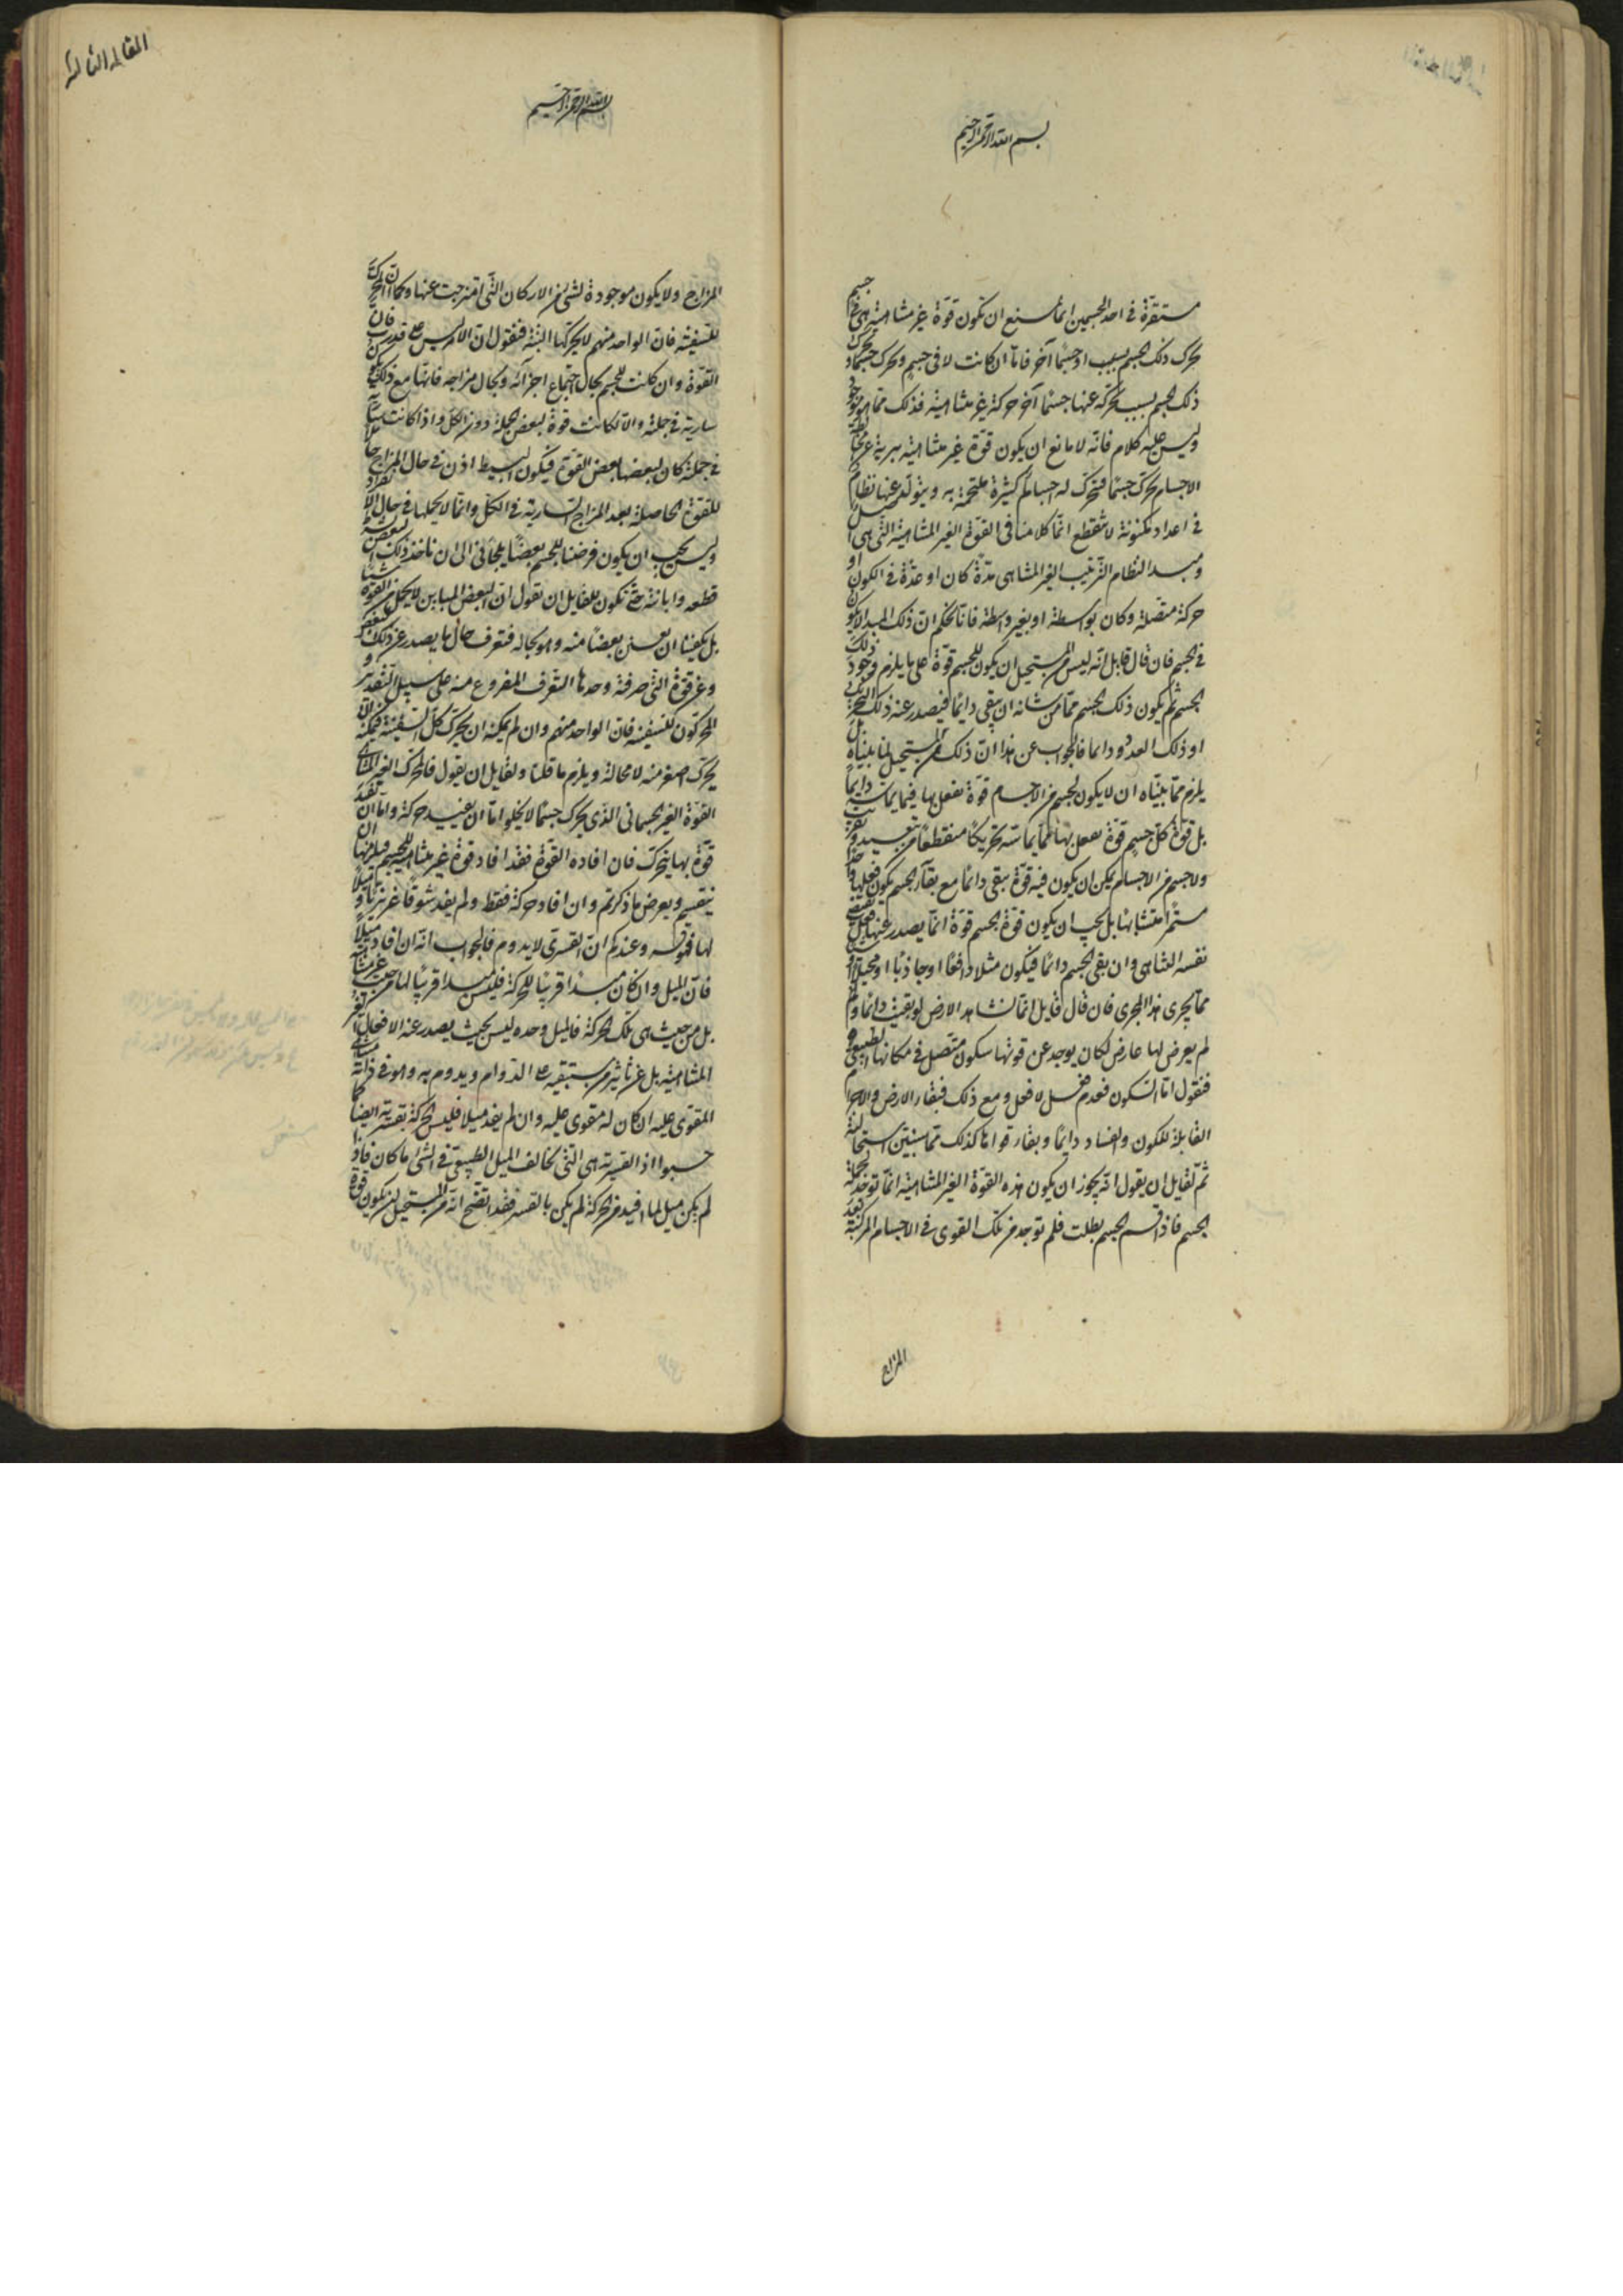 بسم الله الرحمن الرحيم
مستقرّة في احد الجسمين انما نمنع ان تكون قوّة غير متناهية هي في جسم
تحرك ذلك الجسم بسبب او جسمًا آخر فامّا ان كانت لا في جسم وتحرك جسمًا او يحرك
ذلك الجسم بسبب تحركه عنها جسمًا آخر حركة غير متناهية فذلك مما هو موجود
وليس عليه كلام فانّه لا مانع ان يكون قوّة غير متناهية بريّة عن مخالطة
الاجسام تحرك جسمًا فتحرك له اجسام كثيرة ملتحمة به ويتولّد عنها نظام
في اعداد متكونة لا تنقطع انّما كلامنا في القوّة الغير المتناهية التي هي اصل
ومبدا النظام الترتيب الغير المتناهى مدّة كان او عدّة في الكون او
حركة متّصلة وكان بواسطة او بغير واسطة فانّا نحكم انّ ذلك المبدا لا يكون
في الجسم فان قال قايل انّه ليس من المستحيل ان يكون للجسم قوّة على ما يلزم وجود ذلك
الجسم ثم يكون ذلك الجسم ممّا من شانه ان يبقى دائمًا فيصدر عنه ذلك التحريك
او ذلك العدد دائما فالجواب عن هذا انّ ذلك من المستحيل لما بيّناه بل
يلزم ممّا بيّنّاه ان لا يكون لجسم من الاجسام قوّة تفعل بها فيما يماسّه دايمًا
بل قوة كلّ جسم قوّة يفعل بها فيما يماسّه تحريكًا منقطعًا من تبعيد وتقريب
ولا جسم من الاجسام يمكن ان يكون فيه قوّة تبقى دائمًا مع بقآء الجسم يكون فعلها واحدًا
مستمرًّا متشابهًا بل يجب ان يكون قوّة الجسم قوّة انّما يصدر عنها فعل يقتضى
نفسه التناهى وان بقى الجسم دائمًا فيكون مثلا دافعًا او جاذبًا او محيلًا او شيئًا
ممّا يجرى هذا المجرى فان قال قايل انّما نشاهد الارض لو بقيت دائمًا و
لم يعرض لها عارض لكان يوجد عن قوتها سكون متّصل في مكانها الطبيعى
فنقول امّا السكون فعدم فعل لا فعل ومع ذلك فبقاء الارض والاجرام
القابلة للكون والفساد دايمًا وبقاء قواها كذلك ممّا سنبيّن استحالته
ثمّ لقايل ان يقول انّه يجوز ان يكون هذه القوّة الغير المتناهية انّما توجد لجملة
الجسم فاذا قسم الجسم بطلت فلم توجد من تلك القوى في الاجسام المركّبة بعد
المزاج
المقالة الثالثة
بسم الله الرحمن الرحيم
المزاج ولا يكون موجودة لشىء من الاركان التى امتزجت عنها وكما ان المحركين
للسفينة فان الواحد منهم لا يحركها البتة فنقول ان الامر ليس على قدرت فان
القوّة وان كانت للجسم بحال اجتماع اجزآئه وبحال مزاجه فانها مع ذلك يكون
سارية في جملته والّا لكانت قوة لبعض الجملة دون الكل واذا كانت سارية
في جملته كان لبعضها بعض القوة فيكون البسيط اذن في حال المزاج حاملا
للقوة الحاصلة بعد المزاج السارية في الكلّ وانّما لا يحملها في حال الانفراد
وليس يجب ان يكون فرضنا للجسم بعضًا يلجأنى الى ان ناخذ ذلك البعض بشرط
قطعه وابانته حتّى يكون للقايل ان يقول انّ البعض المباين لا يحمل من القوّة شيئًا
بل يكفينا ان نعيّن بعضًا منه وهو بحاله فنعرف حال ما يصدر عن ذلك البعض
وعن قوّة التى صرفنه وحدها التعرّف المفروغ منه على سبيل التقدير و
المحركون للسفينة فان الواحد منهم وان لم يمكنه ان يحرك كلّ السفينة فيمكنه ان
يحرّك اصغر منه لا محالة ويلزم ما قلنا ولقايل ان يقول فالمحرك الغير المتناهى
القوّة الغير الجسمانى الذى يحرك جسمًا لا يخلوا امّا ان يفيد حركة وامّا ان يفيد
قوّة بها يتحرك فان افاده القوّة فقد افاد قوة غير متناهية للجسم فيلزمها ان
ينقسم ويعرض ما ذكرتم وان افاد حركة فقط ولم يفد شوقًا غريزيّا و ميلًا
لها فهو قسر وعندكم ان القسرى لا يدوم فالجواب انّه ان افاد ميلًا
فانّ الميل وان كان مبدأ قريبًا للحركة فليس مبدا قريبًا لها من حيث هى غير متناهية
بل من حيث هى تلك الحركة فالميل وحده ليس بحيث يصدر عنه الافعال الغير
المتناهية بل عن تاثير من يستبقيه على الدوام ويدوم به وهو في ذاته متناهى
المقوى عليه ان كان له مقوى عليه وان لم يفد ميلا فليس الحركة بقسرية ايضا كما
حسبوا اذ القسرية هى التى تخالف الميل الطبيعى في الشىء ما كان فاذا
لم يكن ميل لما افيد من الحركة لم يكن بالقسر فقد اتّضح انّه من المستحيل ان يكون قوة